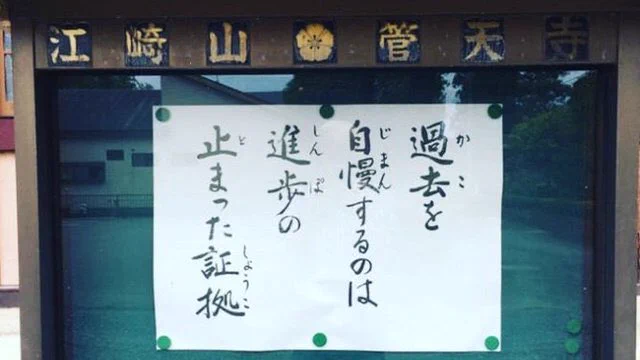 江崎山 管天寺
過去を
かこ
自慢するのは
じまん
進歩の
しんぽ
止まった証拠
と
しょうこ